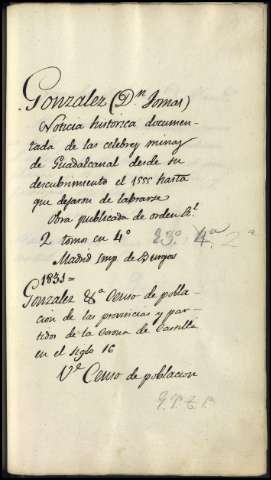 Gonzalez (Dn Tomas)
Noticia historica documen-
tada de las celebres minas
de Guadalcanal desde su
descubrimiento el 1555 hasta
que dejaron de labrarse
Obra publicada de orden Rl.
2 tomos en 4º 23º 4ª 2ª
Madrid Imp. de Burgos
1831=
Gonzalez Censo de pobla-
cion de las provincias y par-
tidos de la Corona de Castilla
en el siglo 16
Ve Censo de poblacion